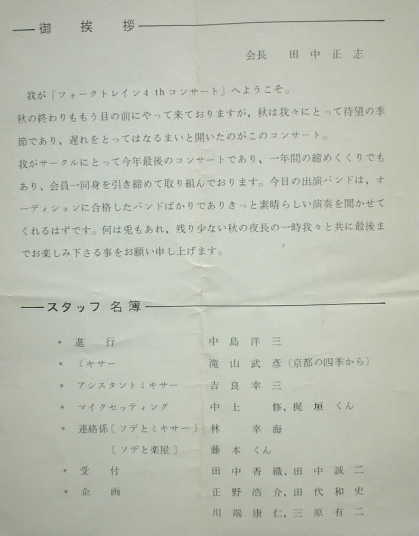 御挨拶
会長 田中正志
我が「フォークトレイン4thコンサート」へようこそ。
秋の終わりももう目の前にやって来ておりますが、秋は我々にとって待望の季
節であり、遅れをとってはなるまいと開いたのがこのコンサート。
我がサークルにとって今年最後のコンサートであり、一年間の締めくくりでも
あり、会員一同身を引き締めて取り組んでおります。今日の出演バンドは、オ
ーディションに合格したバンドばかりでありきっと素晴らしい演奏を聞かせて
くれるはずです。何は兎もあれ、残り少ない秋の夜長の一時我々と共に最後ま
でお楽しみ下さる事をお願い申し上げます。
スタッフ名簿
* 進行 中島洋三
* ミキサー 滝山武彦(京都の四季から)
* アシスタントミキサー 吉良幸三
* マイクセッティング 中土 修、梶垣くん
* 連絡係〔ソデとミキサー〕 林 幸海
〔ソデと楽屋〕 藤本くん
* 受付 田中香織、田中誠二
* 企画 正野浩介、田代和史
川端康仁、三原有二